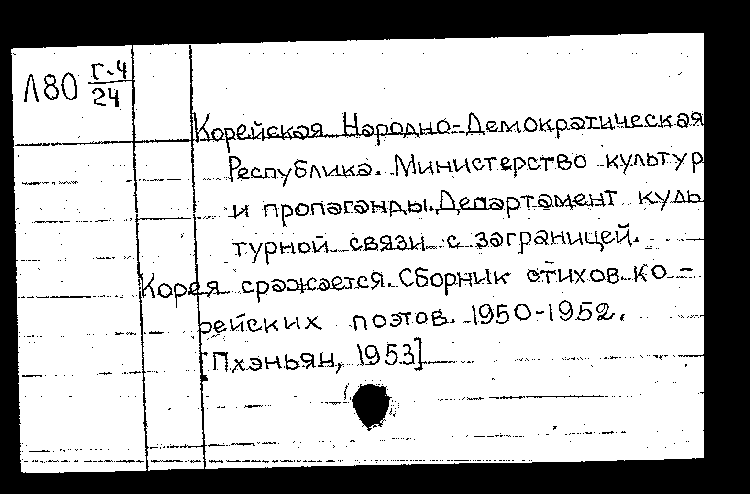 Л80 Г-4/24
Корейская Народно-Демократическая
Республика. Министерство культур
и пропаганды. Департамент куль
турной связи с заграницей.
Корея сражается. Сборник стихов ко-
рейских поэтов. 1950-1952.
[Пхэньян, 1953]